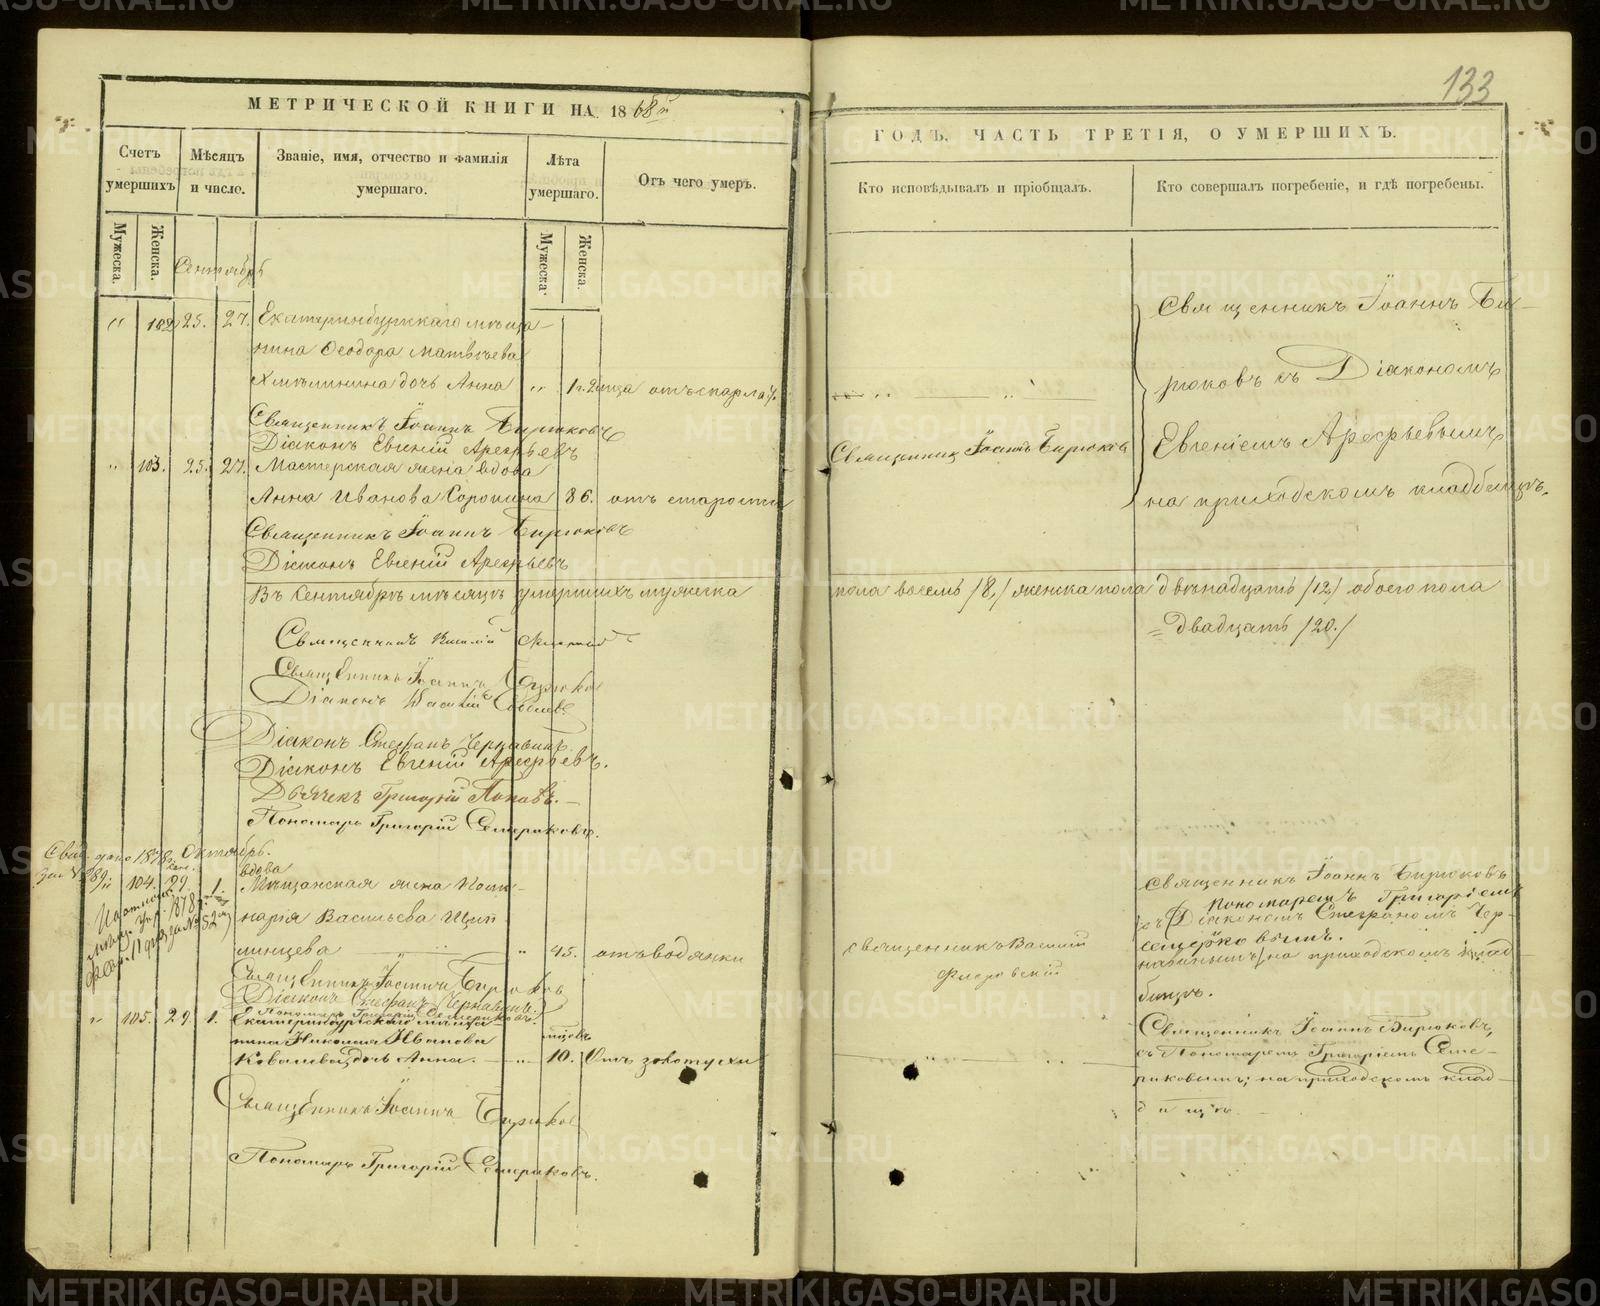 133
МЕТРИЧЕСКОЙ КНИГИ НА 1868й
ГОДЪ, ЧАСТЬ ТРЕТІЯ, О УМЕРШИХЪ.
Счетъ умершихъ
Мѣсяцъ и число.
Званіе, имя, отчество и фамилія умершаго.
Лѣта умершаго.
Отъ чего умеръ.
Кто исповѣдывалъ и пріобщалъ.
Кто совершалъ погребеніе, и гдѣ погребены.
Мужеска.
Женска.
Мужеска.
Женска.
Сентябрь
" 102 25. 27. Екатеринбургскаго мѣща-
нина Ѳеодора Матвѣева
Хмѣлинина дочь Анна " 1 г. 2 мца отъ скарлат.
Священникъ Іоаннъ Бирюковъ
Діаконъ Евгеній Арефьевъ
" 103. 25. 27. Мастерская жена вдова
Анна Иванова Сорокина 86. отъ старости
Священникъ Іоаннъ Бирюковъ
Священникъ Іоаннъ Бирюковъ
Діаконъ Евгеній Арефьевъ
Священникъ Іоаннъ Би-
рюковъ съ Діакономъ
Евгеніемъ Арефьевымъ
на приходскомъ кладбищѣ.
Въ Сентябрѣ мѣсяцѣ умершихъ мужеска пола восемь /8,/ женска пола двѣнадцать /12/ обоего пола
двадцать /20./
Священникъ Василій
Священникъ Іоаннъ Бирюковъ
Діаконъ Василій
Діаконъ Стефанъ Чернавинъ
Діаконъ Евгеній Арефьевъ.
Дьячекъ Григорій Поповъ.
Пономарь Григорій Семериковъ.
Октябрь.
104. 29. 1. вдова
Мѣщанская жена
Васильева Щип-
линцева " 45. отъ водянки
священникъ Василій
Флоровскій
Священникъ Іоаннъ Бирюковъ
Діаконъ Стефанъ Чернавинъ
Пономарь Григорій Семериковъ.
Священникъ Іоаннъ Бирюковъ
Пономаремъ Григоріемъ
съ Діакономъ Стефаномъ Чер-
Семериковымъ.
навинымъ, на приходскомъ клад-
бищѣ.
" 105. 29. 1. Екатеринбургскаго мѣща-
нина Николая Иванова
Ковалева дочь Анна. " 10. мцовъ Отъ золотухи
Священникъ Іоаннъ Бирюковъ
Пономарь Григорій Семериковъ.
Священникъ Іоаннъ Бирюковъ,
съ Пономаремъ Григоріемъ Семе-
риковымъ; на приходскомъ клад-
бищѣ.
METRIKI.GASO-URAL.RU